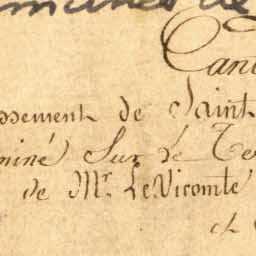 Can
ssement de Saint
miné Sur de Te
de Mr. LeVicomte
et